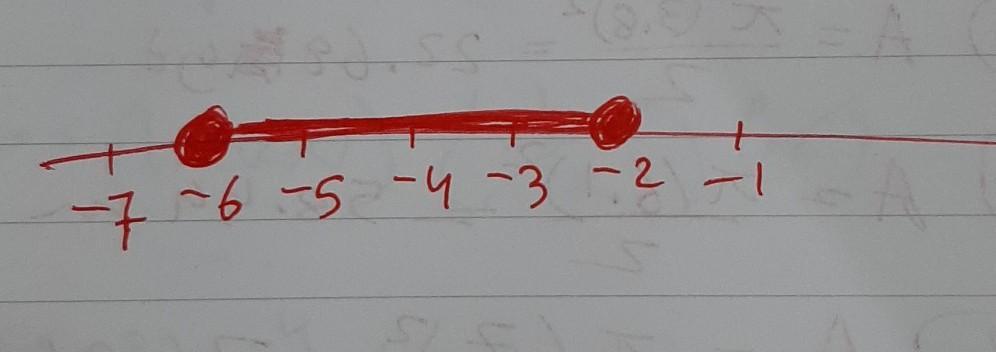 -7 -6 -5 -4 -3 -2 -1